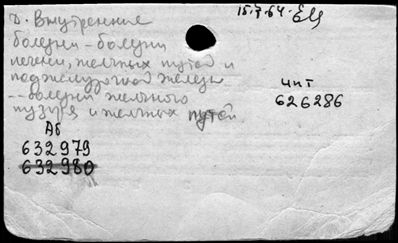 Ъ. Внутренние
болезни - болезни
печени, желчных путей и
поджелудочной железы
-- болезни желчного
пузыря и желчных путей
15.V.64. ЕЦ
чит
626286
Аб
632979
632980